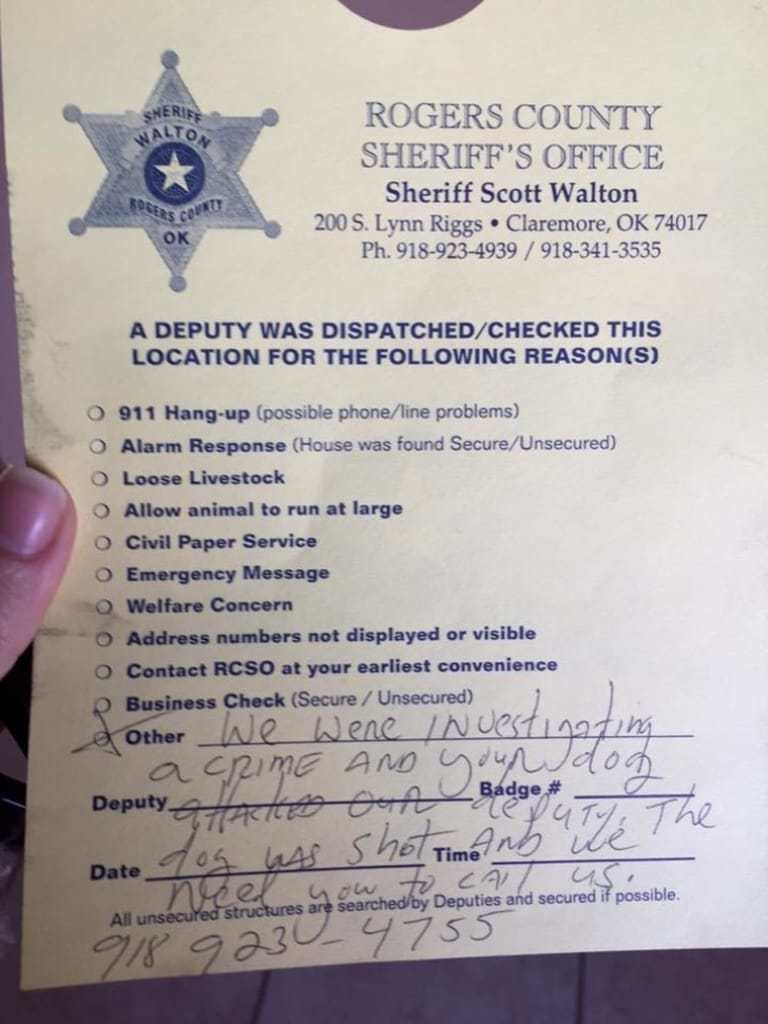 SHERIFF
WALTON
ROGERS COUNTY
OK
ROGERS COUNTY
SHERIFF'S OFFICE
Sheriff Scott Walton
200 S. Lynn Riggs • Claremore, OK 74017
Ph. 918-923-4939 / 918-341-3535
A DEPUTY WAS DISPATCHED/CHECKED THIS
LOCATION FOR THE FOLLOWING REASON(S)
911 Hang-up (possible phone/line problems)
Alarm Response (House was found Secure/Unsecured)
Loose Livestock
Allow animal to run at large
Civil Paper Service
Emergency Message
Welfare Concern
Address numbers not displayed or visible
Contact RCSO at your earliest convenience
Business Check (Secure / Unsecured)
Other We were investigating
a crime and your dog
Deputy Badge #
attacked our deputy. The
dog was shot and we
Date Time
need you to call us.
All unsecured structures are searched by Deputies and secured if possible.
918 923-4755